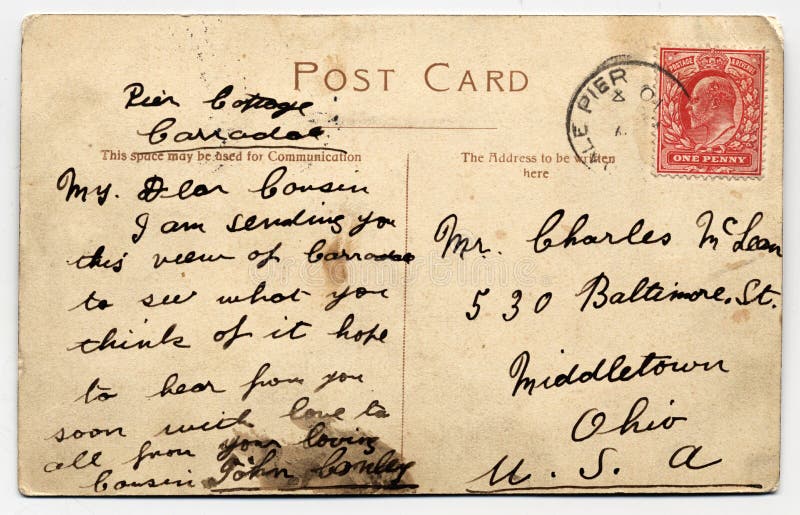 POST CARD
Pier Cottage
Carradale
This space may be used for Communication
My. Dear Cousin
I am sending you
this view of Carradale
to see what you
think of it hope
to hear from you
soon with love to
all from your loving
Cousin John Conley
The Address to be written
here
Mr. Charles McLean
530 Baltimore. St.
Middletown
Ohio
U. S. A
POSTAGE & REVENUE
ONE PENNY
PIER
dreamstime